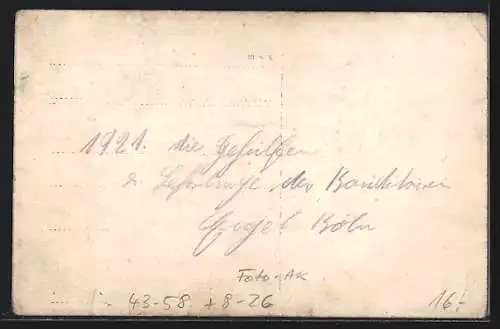 1921. die Gehülfen
& Lehrlinge der Konditorei
Gogel Köln
Foto-AK
43-58 + 8-26
16,-